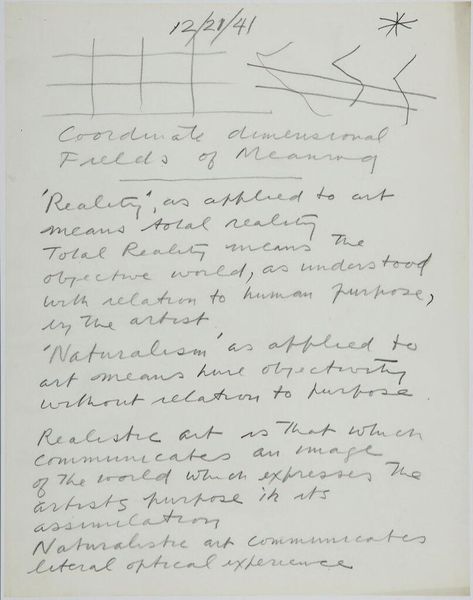 12/21/41
Coordinate dimensional
Fields of Meaning
'Reality', as applied to art
means total reality
Total Reality means the
objective world, as understood
with relation to human purpose,
by the artist
'Naturalism' as applied to
art means pure objectivity
without relation to purpose.
Realistic art is that which
communicates an image
of the world which expresses the
artists purpose in its
assimilation
Naturalistic art communicates
literal optical experience